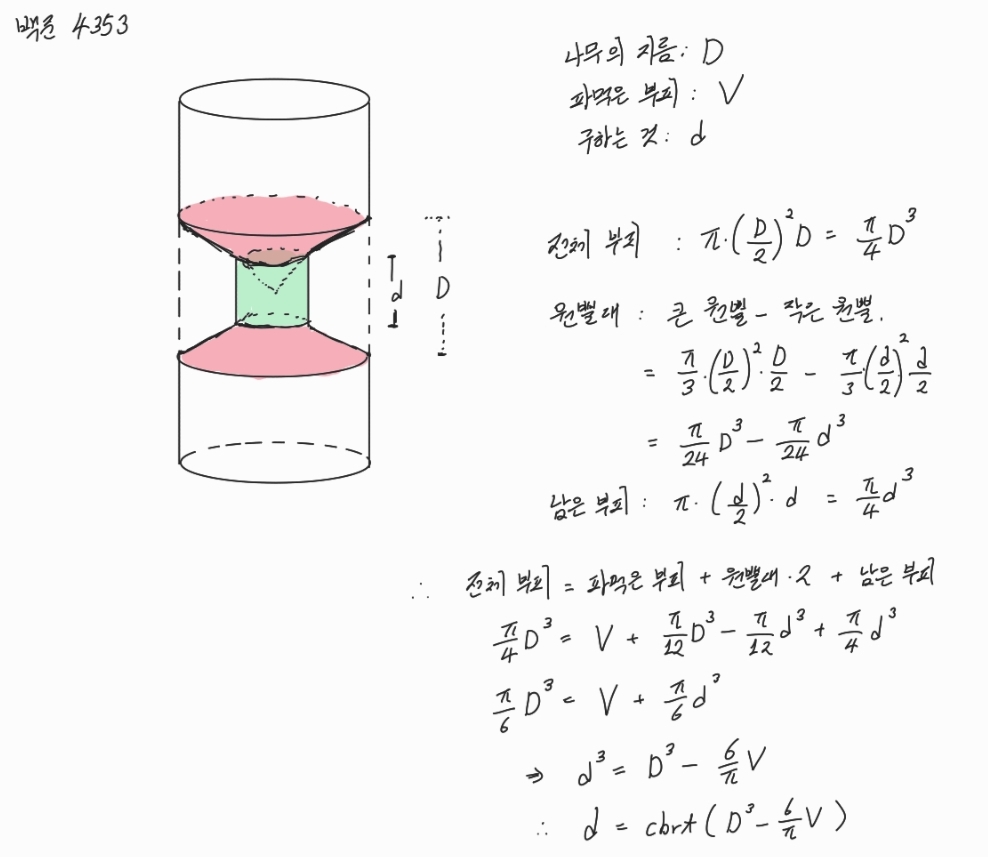 백준 4353
나무의 지름: D
파먹은 부피: V
구하는 것: d
d
D
전체 부피 : π·(D/2)²D = π/4 D³
원뿔대 : 큰 원뿔 - 작은 원뿔.
= π/3·(D/2)²·D/2 - π/3·(d/2)²d/2
= π/24 D³ - π/24 d³
남은 부피: π·(d/2)²·d = π/4 d³
∴ 전체 부피 = 파먹은 부피 + 원뿔대·2 + 남은 부피
π/4 D³ = V + π/12 D³ - π/12 d³ + π/4 d³
π/6 D³ = V + π/6 d³
⇒ d³ = D³ - 6/π V
∴ d = cbrt(D³ - 6/π V)